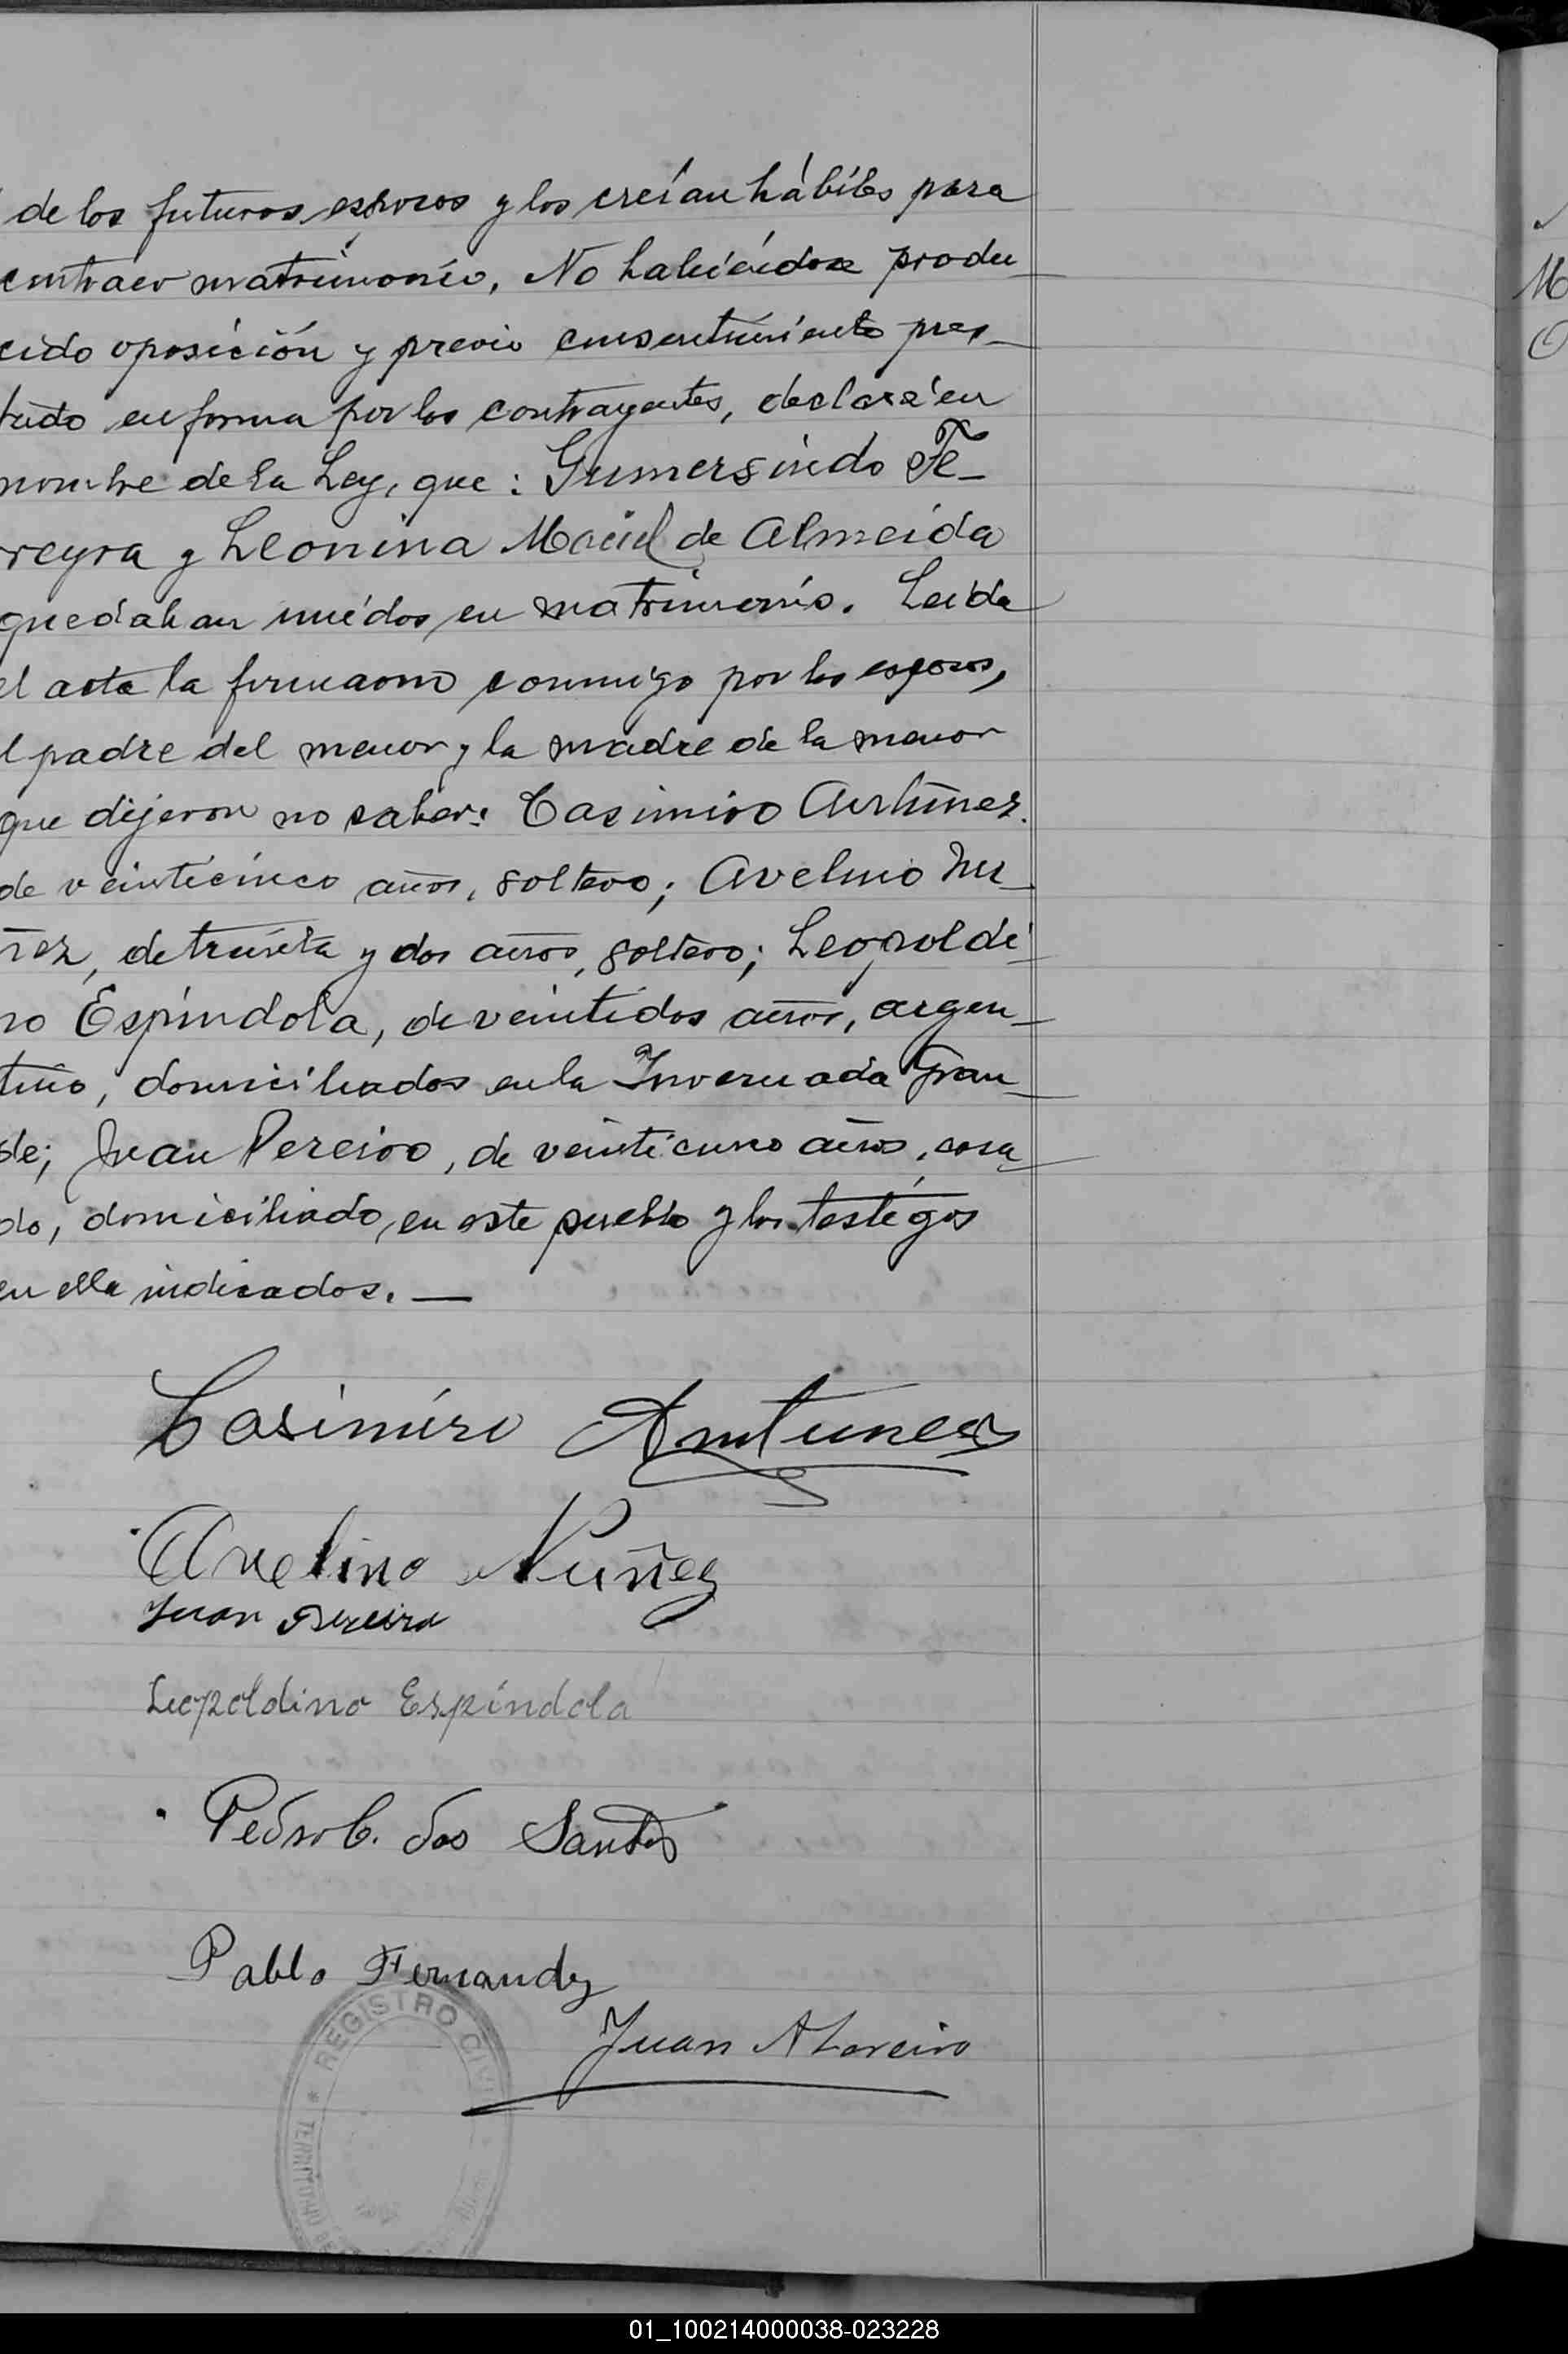 de los futuros esposos y los creían hábiles para
contraer matrimonio. No habiéndose produ
cido oposición y previo consentimiento pres_
tado en forma por los contrayentes, declaré en
nombre de la Ley, que: Gumersindo Fe_
rreyra y Leonina Maciel de Almeida
quedaban unidos en matrimonio. Leída
el acta la firmaron conmigo por los esposos,
el padre del menor y la madre de la menor
que dijeron no saber: Casimiro Antúnez.
de veinticinco años, soltero; Avelino Nu_
ñez, de treinta y dos años, soltero; Leopoldi_
no Espíndola, de veintidos años, argen_
tino, domiciliados en la Invernada Gran_
de; Juan Pereiro, de veinticinco años, casa_
do, domiciliado en este pueblo y los testigos
en ella indicados. —
Casimiro Antunez
Avelino Nuñez
Juan Pereira
Leopoldino Espíndola
Pedro C. dos Santos
Pablo Fernandez
Juan A
REGISTRO CIVIL
TERRITORIO
M
01_100214000038-023228